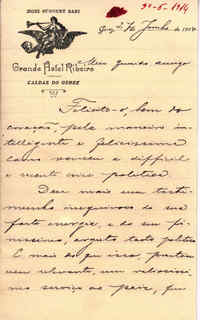 30-6-1914
Grande Hotel Ribeiro
CALDAS DO GEREZ
Gerez, 27 de Junho de 1914
Meu Querido amigo
Felicito-o, bem do
coração, pela maneira in-
telligente e felicissima
como venceu a difficil
e recente crise politica.
Deu mais um teste-
munho inequivoco da sua
forte energia, e do seu fi-
nissimo, arguto tacto politico
E mais do que isso, prestou
um relevante, um valiosissi-
mo serviço ao paiz, que